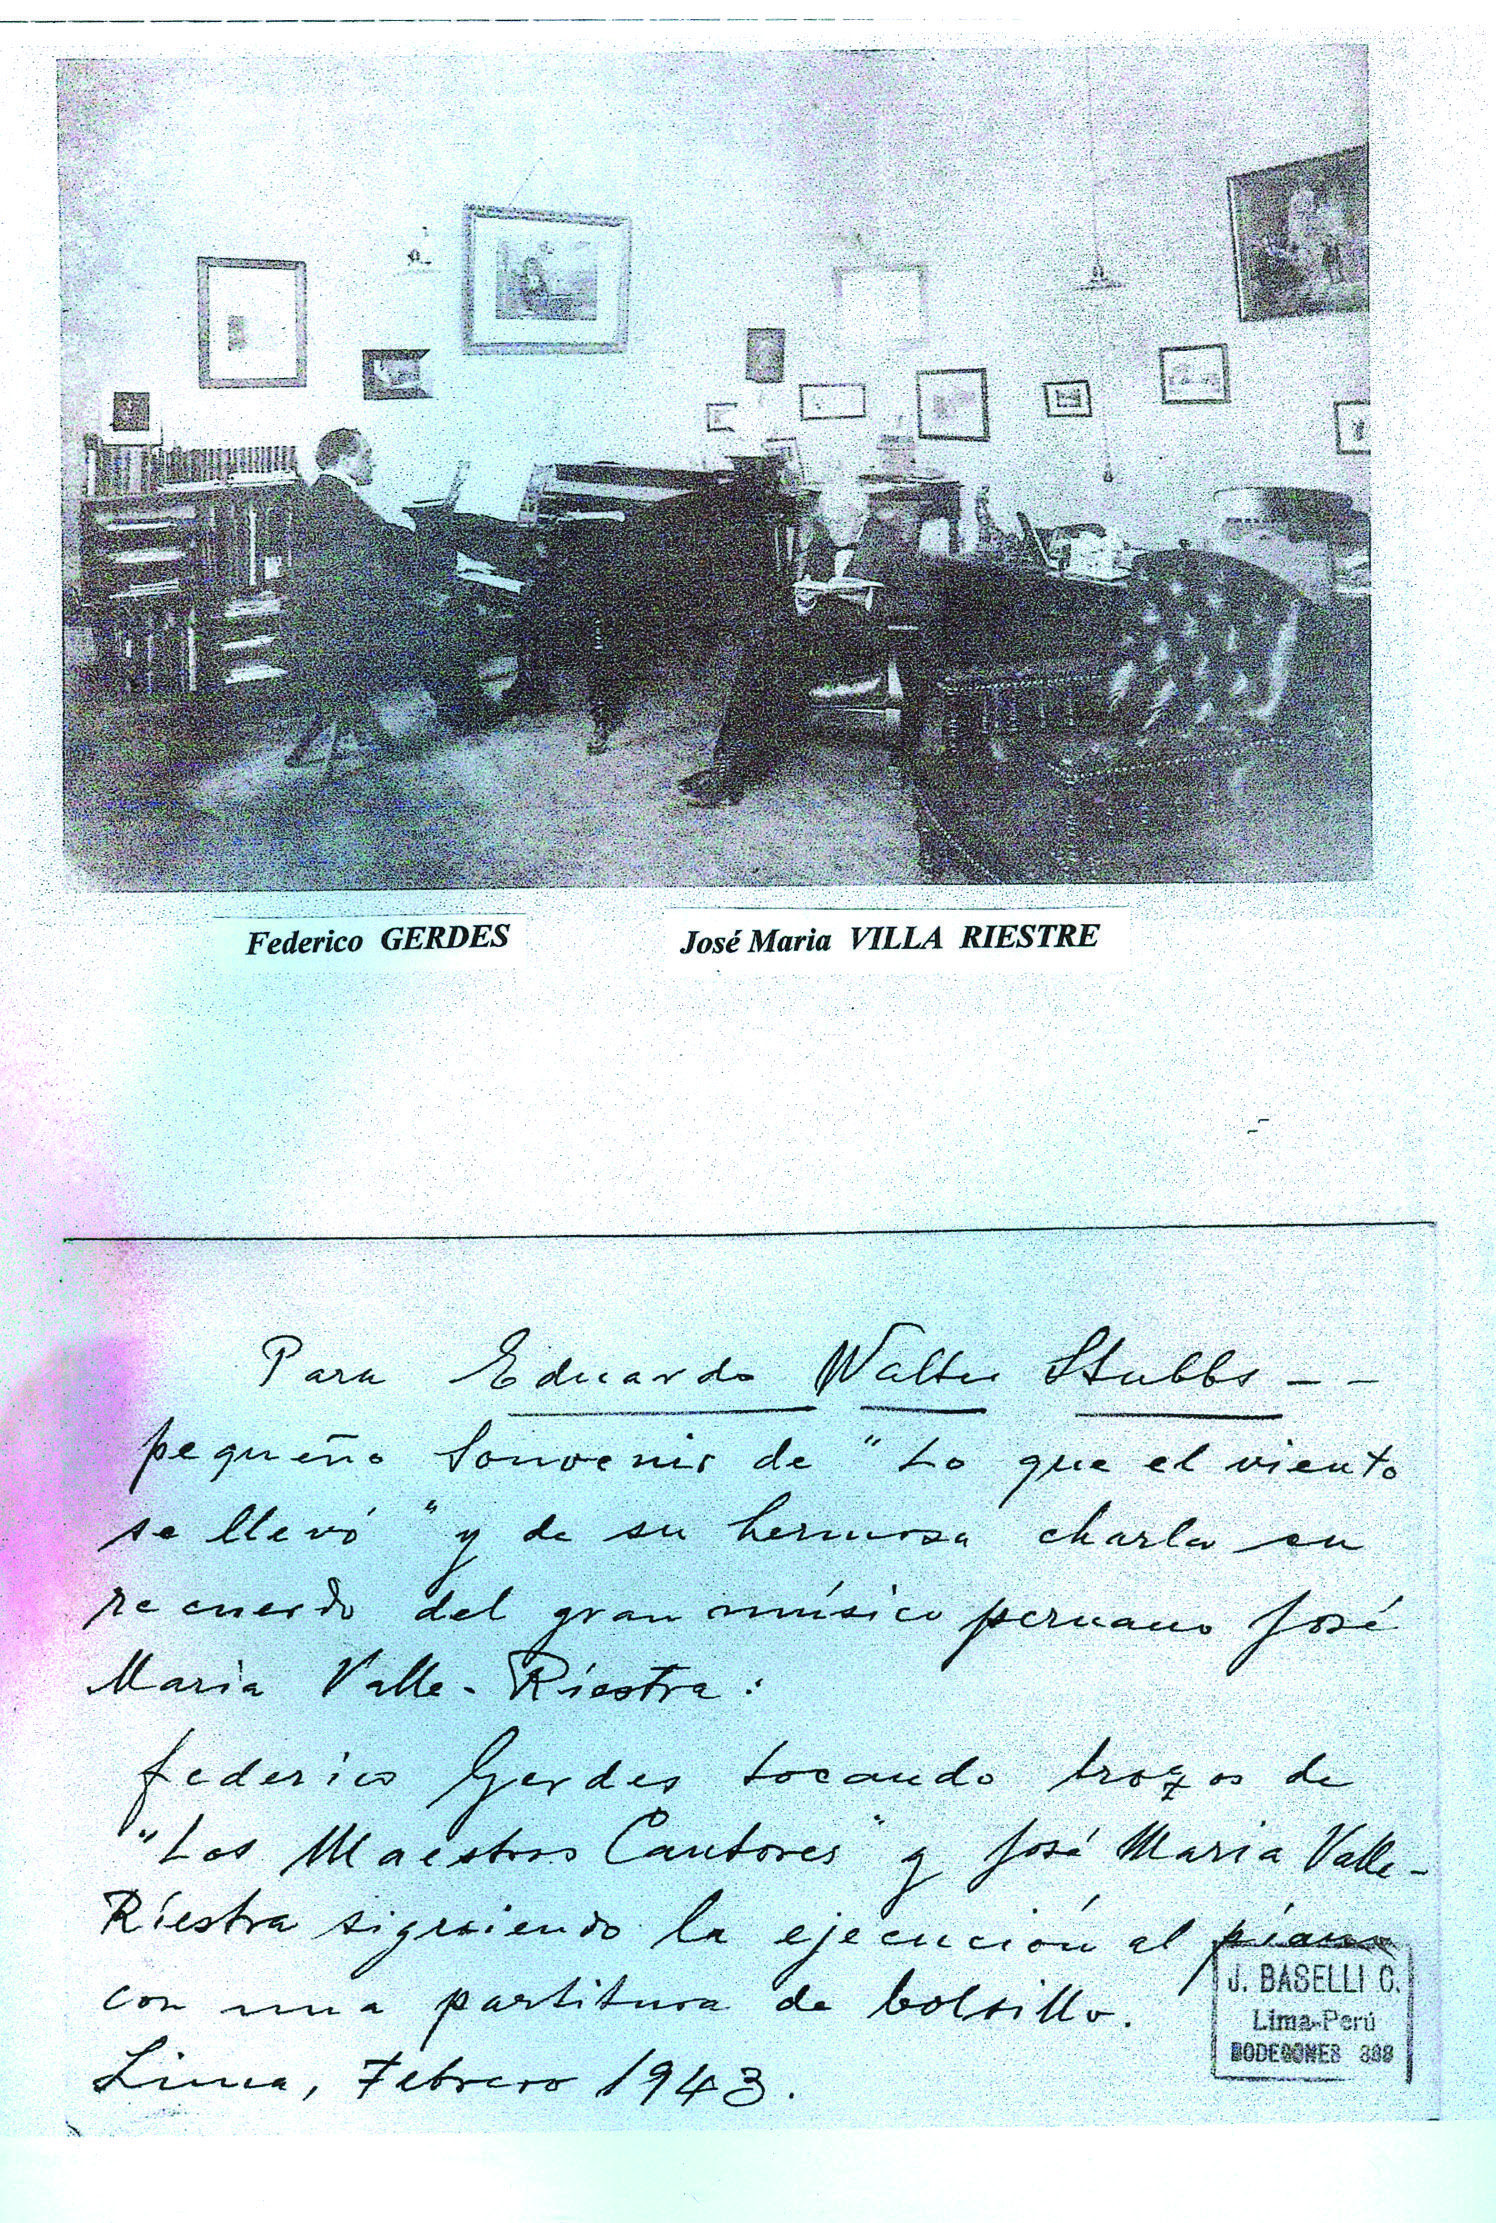 Federico GERDES
José Maria VILLA RIESTRE
Para Eduardo Walter Stubbs - -
pequeño souvenir de "Lo que el viento
se llevó" y de su hermosa charla en
recuerdo del gran músico peruano José
Maria Valle-Riestra:
Federico Gerdes tocando trozos de
"Los Maestros Cantores" y José Maria Valle-
Riestra siguiendo la ejecución al piano
con una partitura de bolsillo.
Lima, Febrero 1943.
J. BASELLI C.
Lima-Perú
BODEGONES